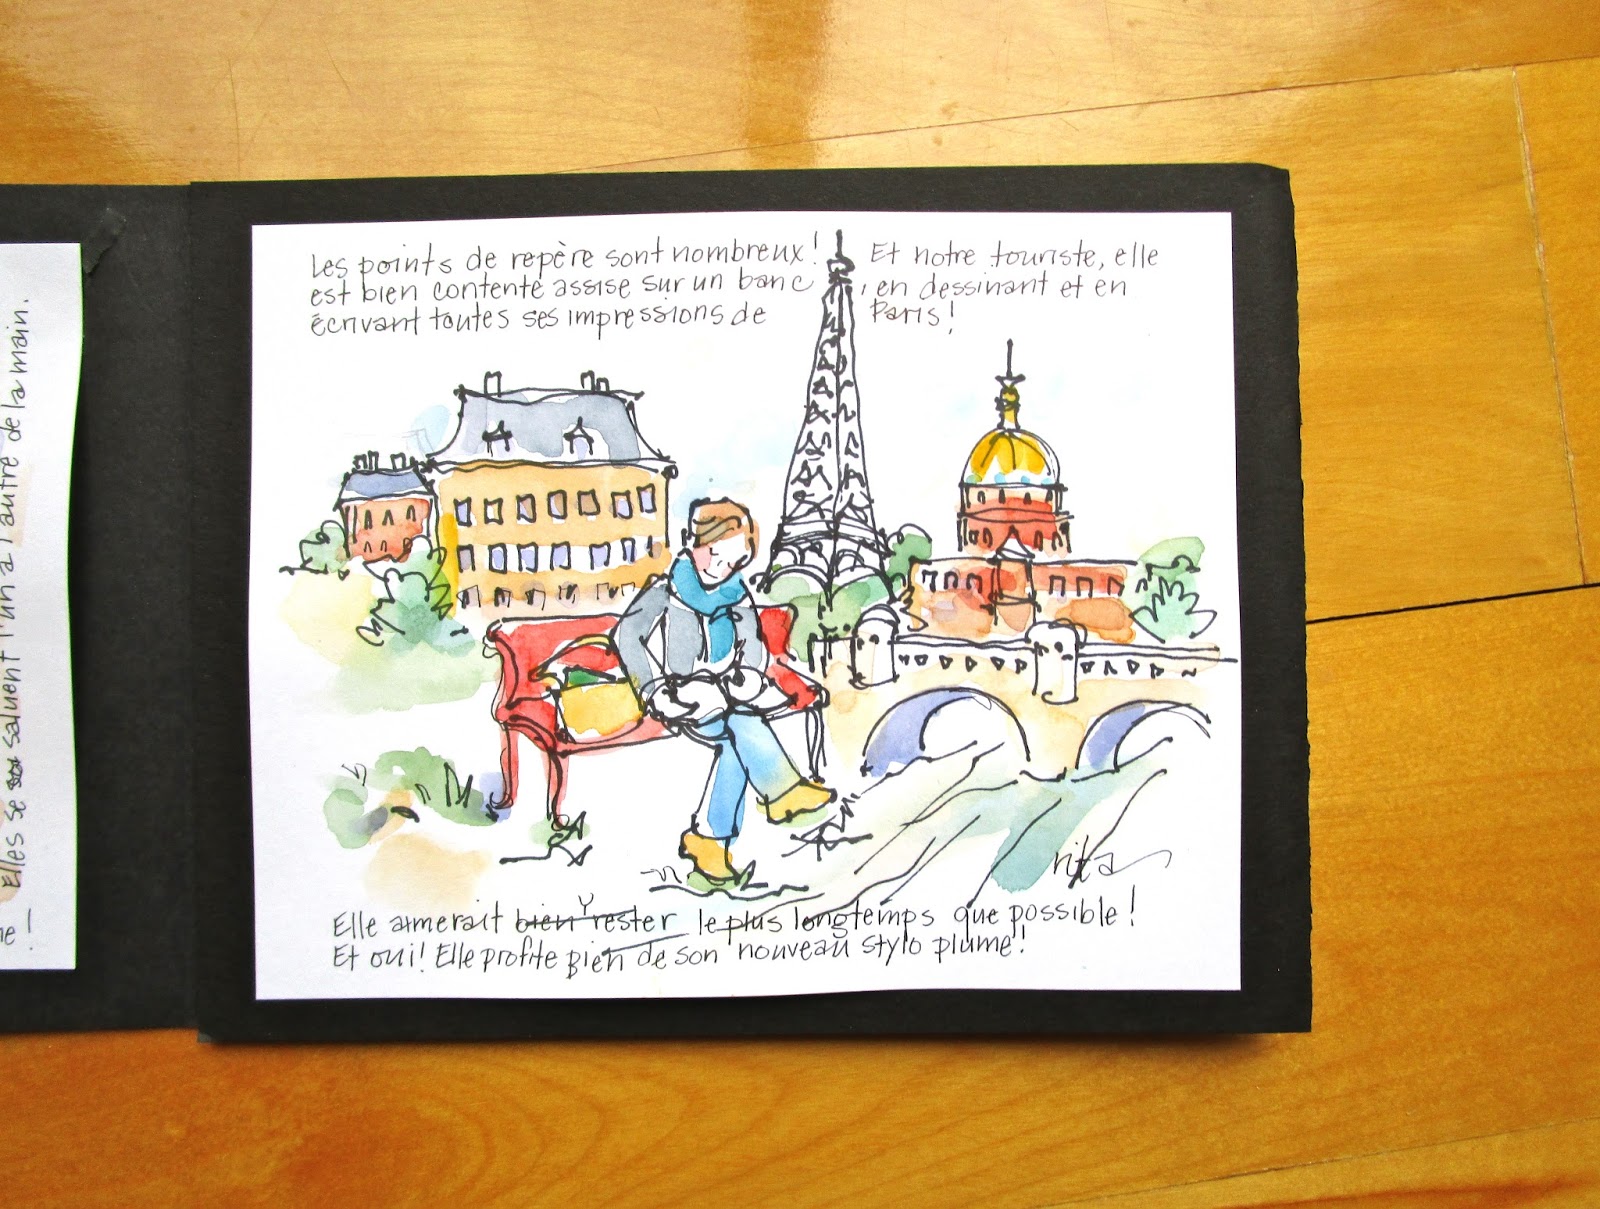 Les points de repère sont nombreux! Et notre touriste, elle
est bien contente assise sur un banc, en dessinant et en
écrivant toutes ses impressions de Paris!
rita
Elle aimerait bien Y rester le plus longtemps que possible!
Et oui! Elle profite bien de son nouveau stylo plume!
Elles se saluent l'un à l'autre de la main.
!